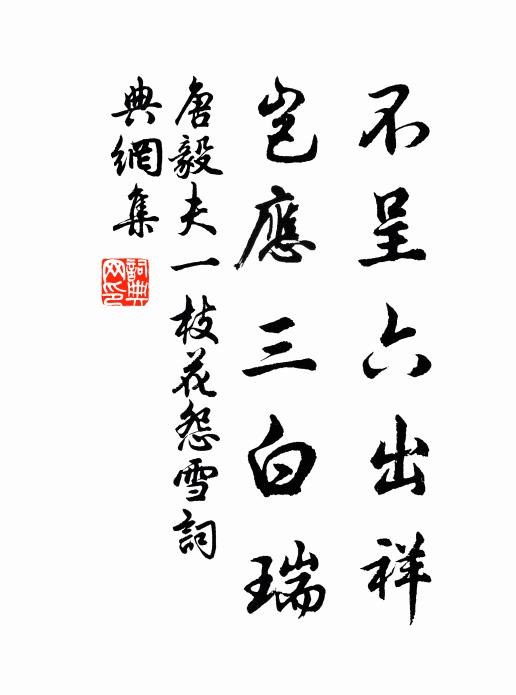 不呈六出祥
豈應三白瑞
唐毅夫一枝花怨雪詞
典網集
詞典網印